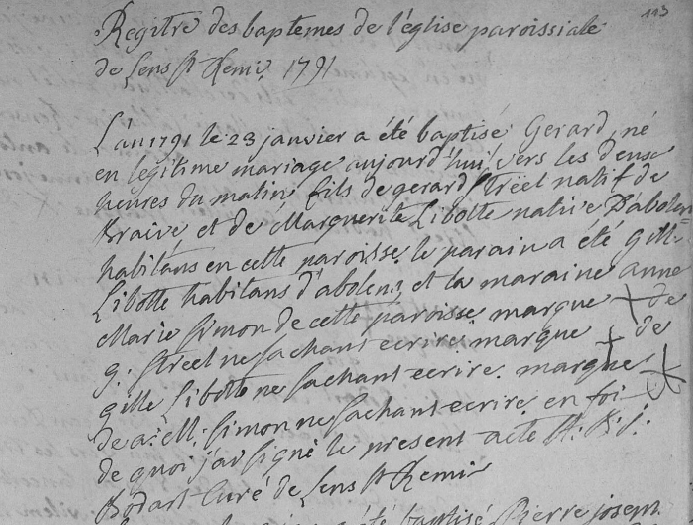 113
Regitre des baptemes de l'église paroissiale
de Lens St Remi, 1791
L'an 1791 le 23 janvier a été baptisé Gerard, né
en legitime mariage aujourd'hui vers les deuse
heures du matin fils de gerard Streel natif de
Braive et de Marguerite Libotte native D'abolen=
habitans en cette paroisse. le parain a été gille
Libotte habitans d'abolens et la maraine anne
Marie Simon de cette paroisse marque + de
g. Streel ne sachant ecrire. marque + de
gille Libotte ne sachant ecrire. marque +
de a: M: Simon ne sachant ecrire. en foi
de quoi j'ai signé le present acte
Bodart Curé de Lens St Remi
été baptisé Pierre josem